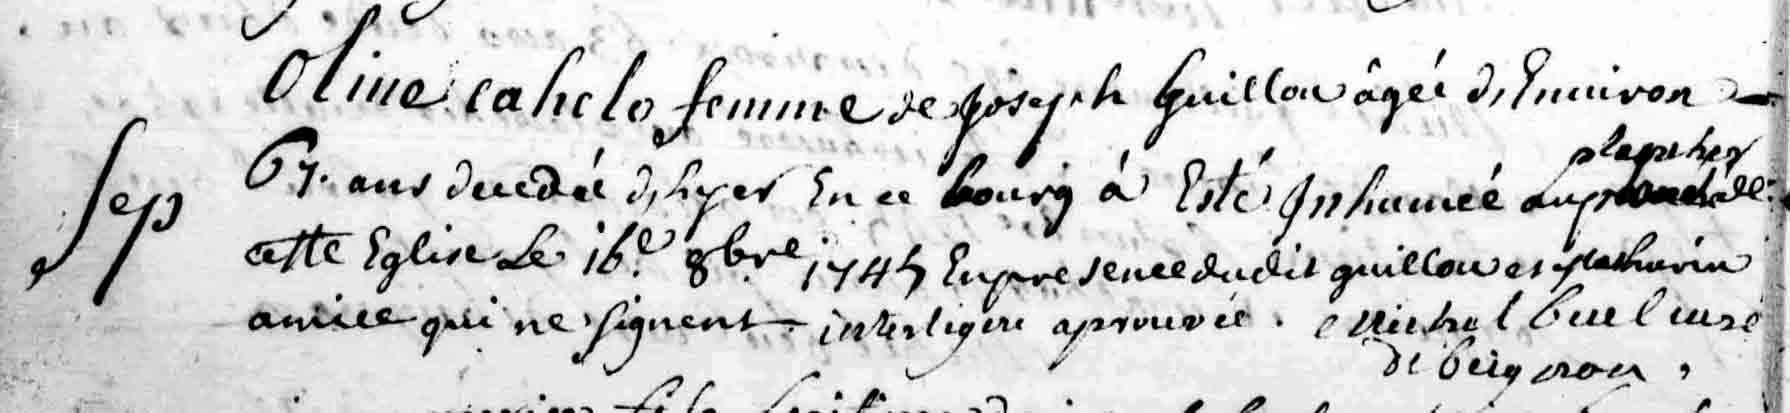 Olive cahelo femme de Joseph Guillou âgéé d'Enuiron
plancher
Sep
67. ans decedéé d'hyer En ce bourg á Esté Inhuméé au de
cette Eglise Le 16.e 8bre 1747 En presence dudit guillou et Mathurin
amice qui ne signent. interligne aprouvée. Michel curé
de